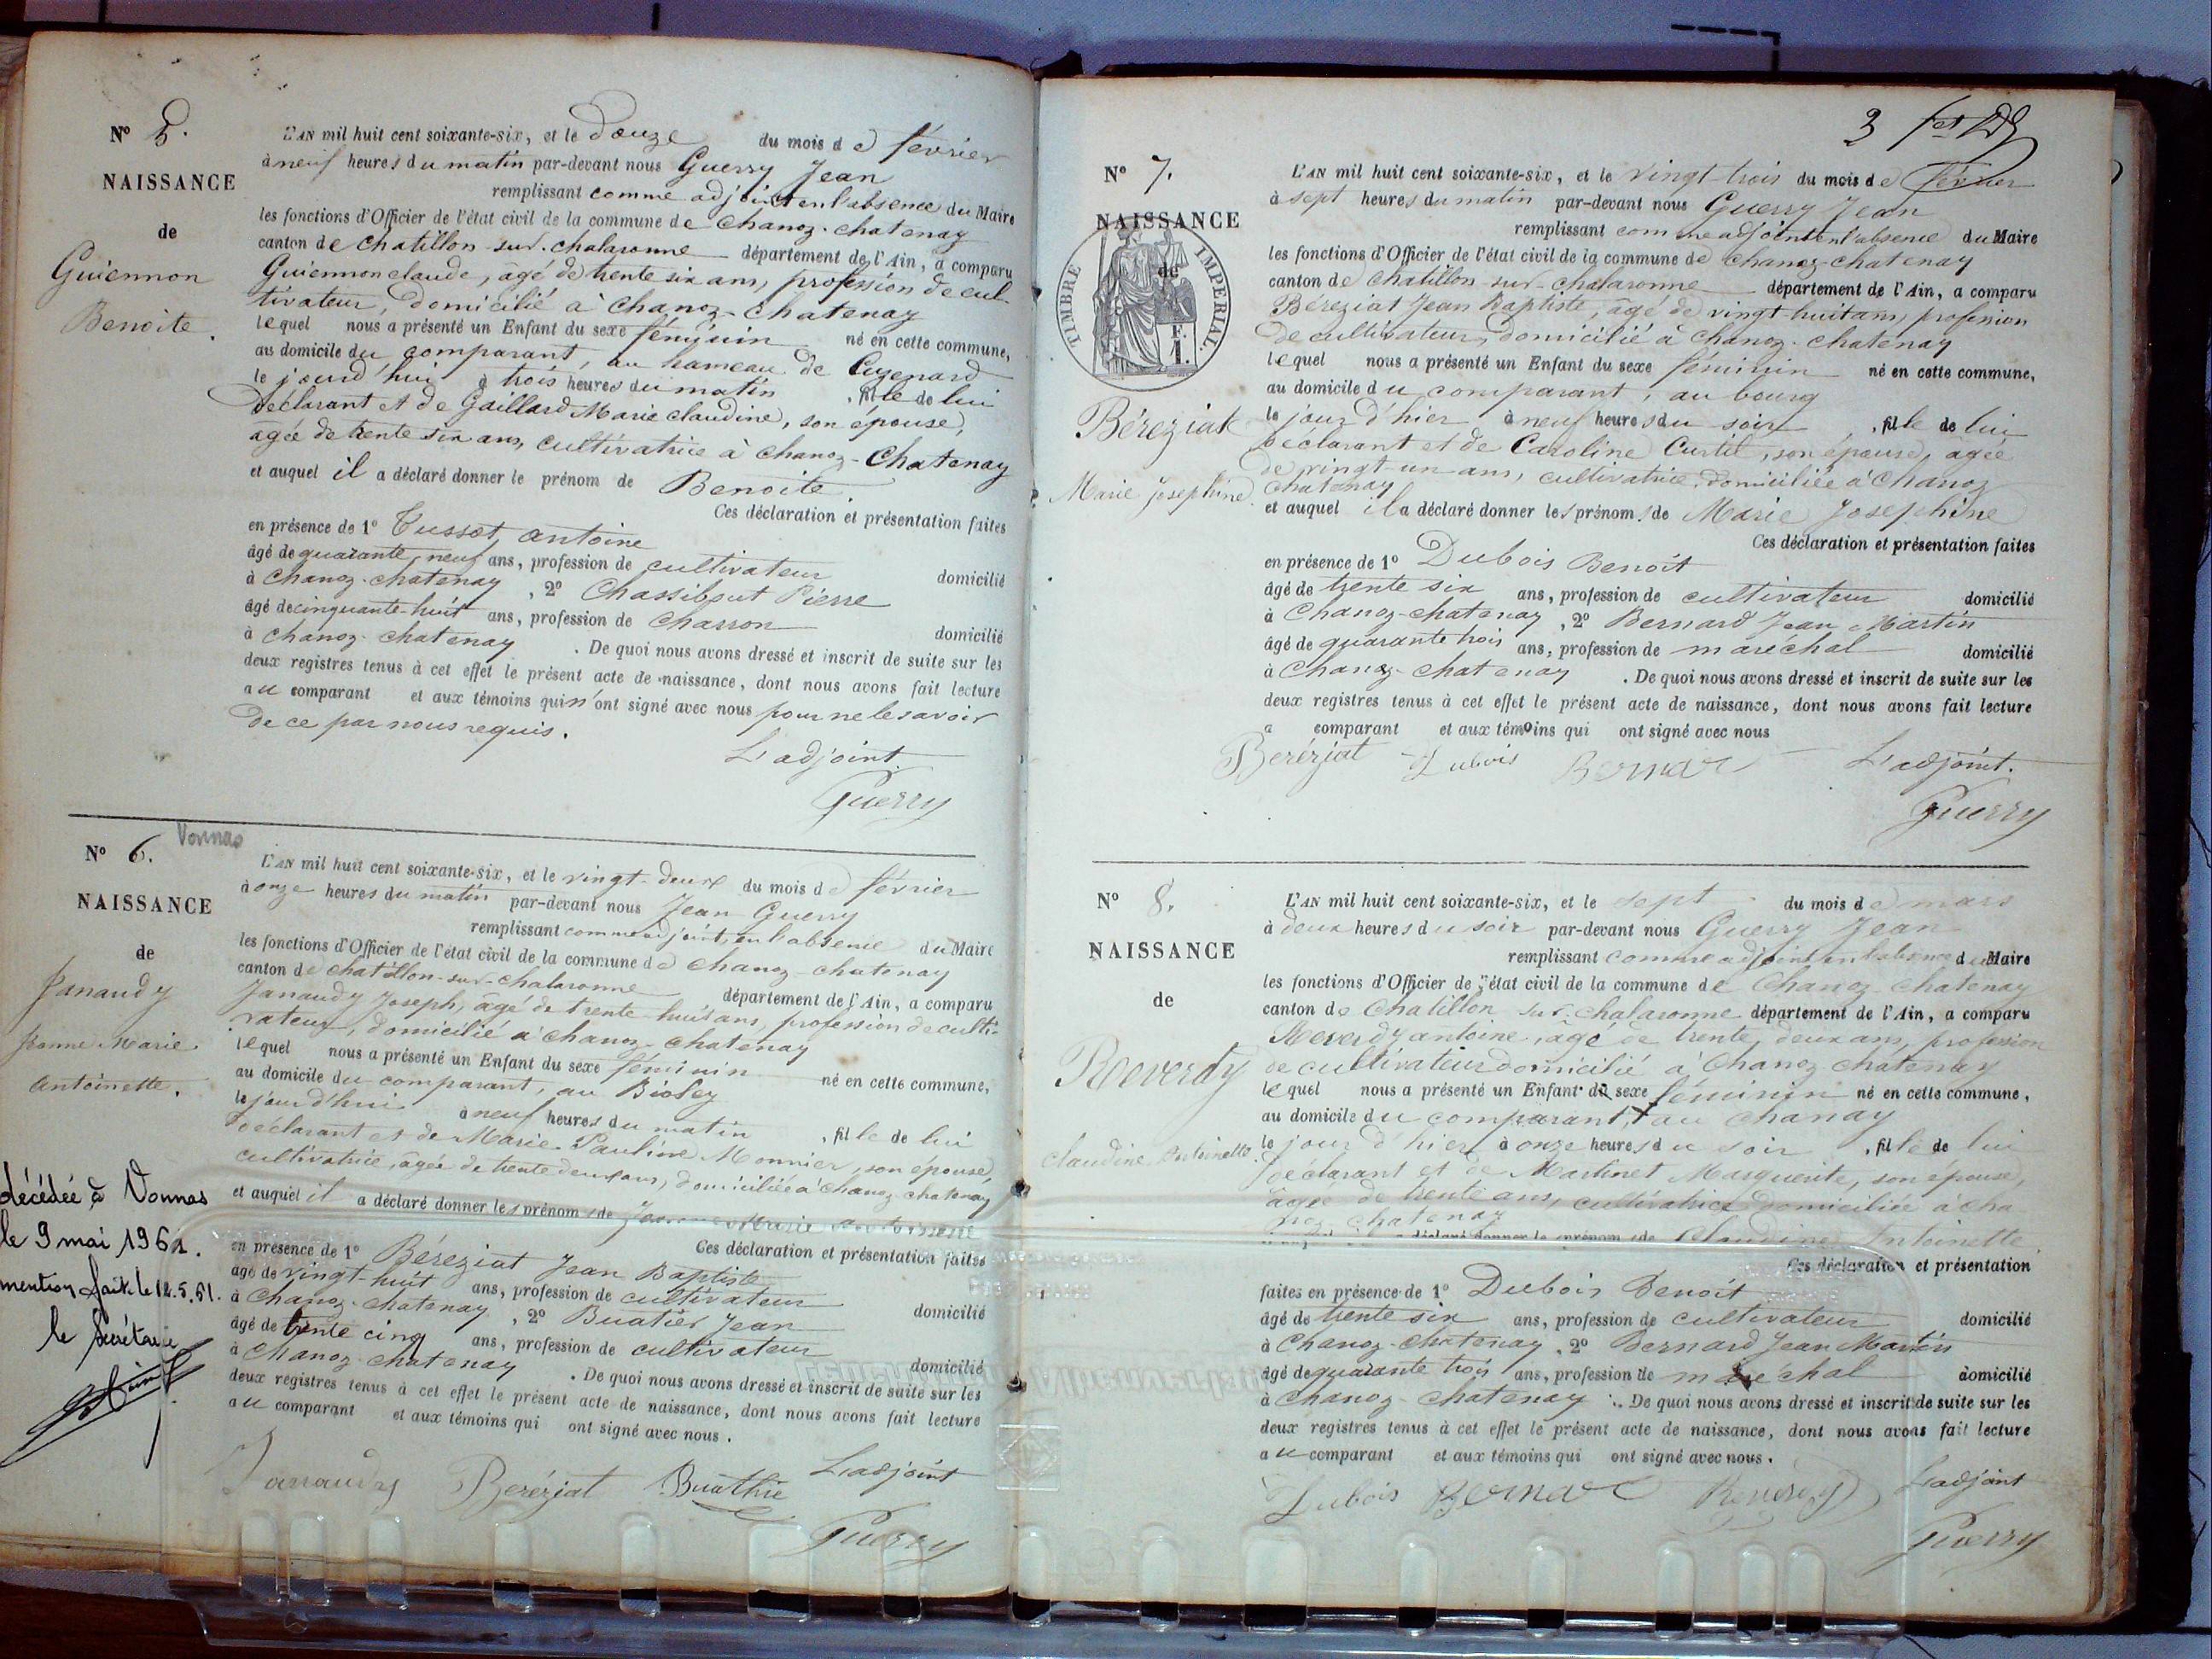 N° 5.
NAISSANCE
de
Guiennon
Benoite.
L'AN mil huit cent soixante-six, et le douze du mois de février
à neuf heures du matin par-devant nous Guerry Jean
remplissant comme adjoint en l'absence du Maire
les fonctions d'Officier de l'état civil de la commune de Chanoz-chatenay
canton de chatillon-sur-chalaronne département de l'Ain, a comparu
Guiennon claude, âgé de trente six ans, profession de cul-
tivateur, domicilié à Chanoz-Chatenay
lequel nous a présenté un Enfant du sexe féminin né en cette commune,
au domicile du comparant, au hameau de
le jourd'hui à trois heures du matin , fille de lui
déclarant et de Gaillard Marie claudine, son épouse,
âgée de trente six ans, cultivatrice à Chanoz-Chatenay
et auquel il a déclaré donner le prénom de Benoite.
Ces déclaration et présentation faites
en présence de 1° antoine
âgé de quarante neuf ans, profession de cultivateur domicilié
à Chanoz-chatenay , 2° Chassibout Pierre
âgé de cinquante-huit ans, profession de Charron domicilié
à Chanoz-chatenay . De quoi nous avons dressé et inscrit de suite sur les
deux registres tenus à cet effet le présent acte de naissance, dont nous avons fait lecture
au comparant et aux témoins qui n'ont signé avec nous pour ne le savoir
de ce par nous requis.
L'adjoint.
Guerry
N° 6. Vonnas
NAISSANCE
de
Janaudy
Jeanne Marie
Antoinette.
décédée à Vonnas
le 9 mai 1961.
mention faite le 12.5.61.
le Secrétaire
L'AN mil huit cent soixante-six, et le vingt-deux du mois de février
à onze heures du matin par-devant nous Jean Guerry
remplissant comme adjoint, en l'absence du Maire
les fonctions d'Officier de l'état civil de la commune de Chanoz-chatenay
canton de chatillon-sur-chalaronne département de l'Ain, a comparu
Janaudy Joseph, âgé de trente-huit ans, profession de culti-
vateur, domicilié à chanoz-chatenay
lequel nous a présenté un Enfant du sexe féminin né en cette commune,
au domicile du comparant, au Bioley
le jourd'hui à neuf heures du matin , fille de lui
déclarant et de Marie-Pauline Monnier, son épouse,
cultivatrice, âgée de trente deux ans, domiciliée à chanoz chatenay
et auquel il a déclaré donner les prénoms de Jeanne Marie Antoinette
Ces déclaration et présentation faites
en présence de 1° Béreziat Jean Baptiste
âgé de vingt-huit ans, profession de cultivateur domicilié
à Chanoz-chatenay , 2° Buatier Jean
âgé de trente cinq ans, profession de cultivateur domicilié
à Chanoz-chatenay . De quoi nous avons dressé et inscrit de suite sur les
deux registres tenus à cet effet le présent acte de naissance, dont nous avons fait lecture
au comparant et aux témoins qui ont signé avec nous.
Janaudy Beréziat Buathie L'adjoint
Guerry
3
N° 7.
NAISSANCE
de
TIMBRE IMPERIAL
F.
1.
Béreziat
Marie Josephine
L'AN mil huit cent soixante-six, et le vingt-trois du mois de février
à sept heures du matin par-devant nous Guerry Jean
remplissant comme adjoint en l'absence du Maire
les fonctions d'Officier de l'état civil de la commune de Chanoz-chatenay
canton de chatillon-sur-chalaronne département de l'Ain, a comparu
Béreziat Jean Baptiste, âgé de vingt-huit ans, profession
de cultivateur, domicilié à chanoz-chatenay
lequel nous a présenté un Enfant du sexe féminin né en cette commune,
au domicile du comparant, au bourg
le jour d'hier à neuf heures du soir , fille de lui
déclarant et de Caroline Curtil, son épouse, âgée
de vingt-un ans, cultivatrice, domiciliée à Chanoz
Chatenay
et auquel il a déclaré donner les prénoms de Marie Josephine
Ces déclaration et présentation faites
en présence de 1° Dubois Benoit
âgé de trente six ans, profession de cultivateur domicilié
à Chanoz-chatenay , 2° Bernard Jean Martin
âgé de quarante trois ans, profession de maréchal domicilié
à Chanoz-chatenay . De quoi nous avons dressé et inscrit de suite sur les
deux registres tenus à cet effet le présent acte de naissance, dont nous avons fait lecture
a comparant et aux témoins qui ont signé avec nous
Beréziat Dubois Bernar L'adjoint.
Guerry
N° 8.
NAISSANCE
de
Reverdy
Claudine Antoinette.
L'AN mil huit cent soixante-six, et le sept du mois de mars
à deux heures du soir par-devant nous Guerry Jean
remplissant comme adjoint en l'absence du Maire
les fonctions d'Officier de l'état civil de la commune de Chanoz Chatenay
canton de Chatillon sur chalaronne département de l'Ain, a comparu
Reverdy antoine, âgé de trente deux ans, profession
de cultivateur domicilié à Chanoz chatenay
lequel nous a présenté un Enfant du sexe féminin né en cette commune,
au domicile du comparant, au Chanay
le jour d'hier à onze heures du soir , fille de lui
déclarant et de Martinet Marguerite, son épouse,
âgée de trente ans, cultivatrice domiciliée à cha-
noz-chatenay
a déclaré donner les prénoms de Claudine Antoinette
Ces déclaration et présentation
faites en présence de 1° Dubois Benoit
âgé de trente six ans, profession de cultivateur domicilié
à Chanoz-chatenay , 2° Bernard Jean Martin
âgé de quarante trois ans, profession de maréchal domicilié
à Chanoz-chatenay . De quoi nous avons dressé et inscrit de suite sur les
deux registres tenus à cet effet le présent acte de naissance, dont nous avons fait lecture
au comparant et aux témoins qui ont signé avec nous.
Dubois Bernar Reverdy L'adjoint
Guerry